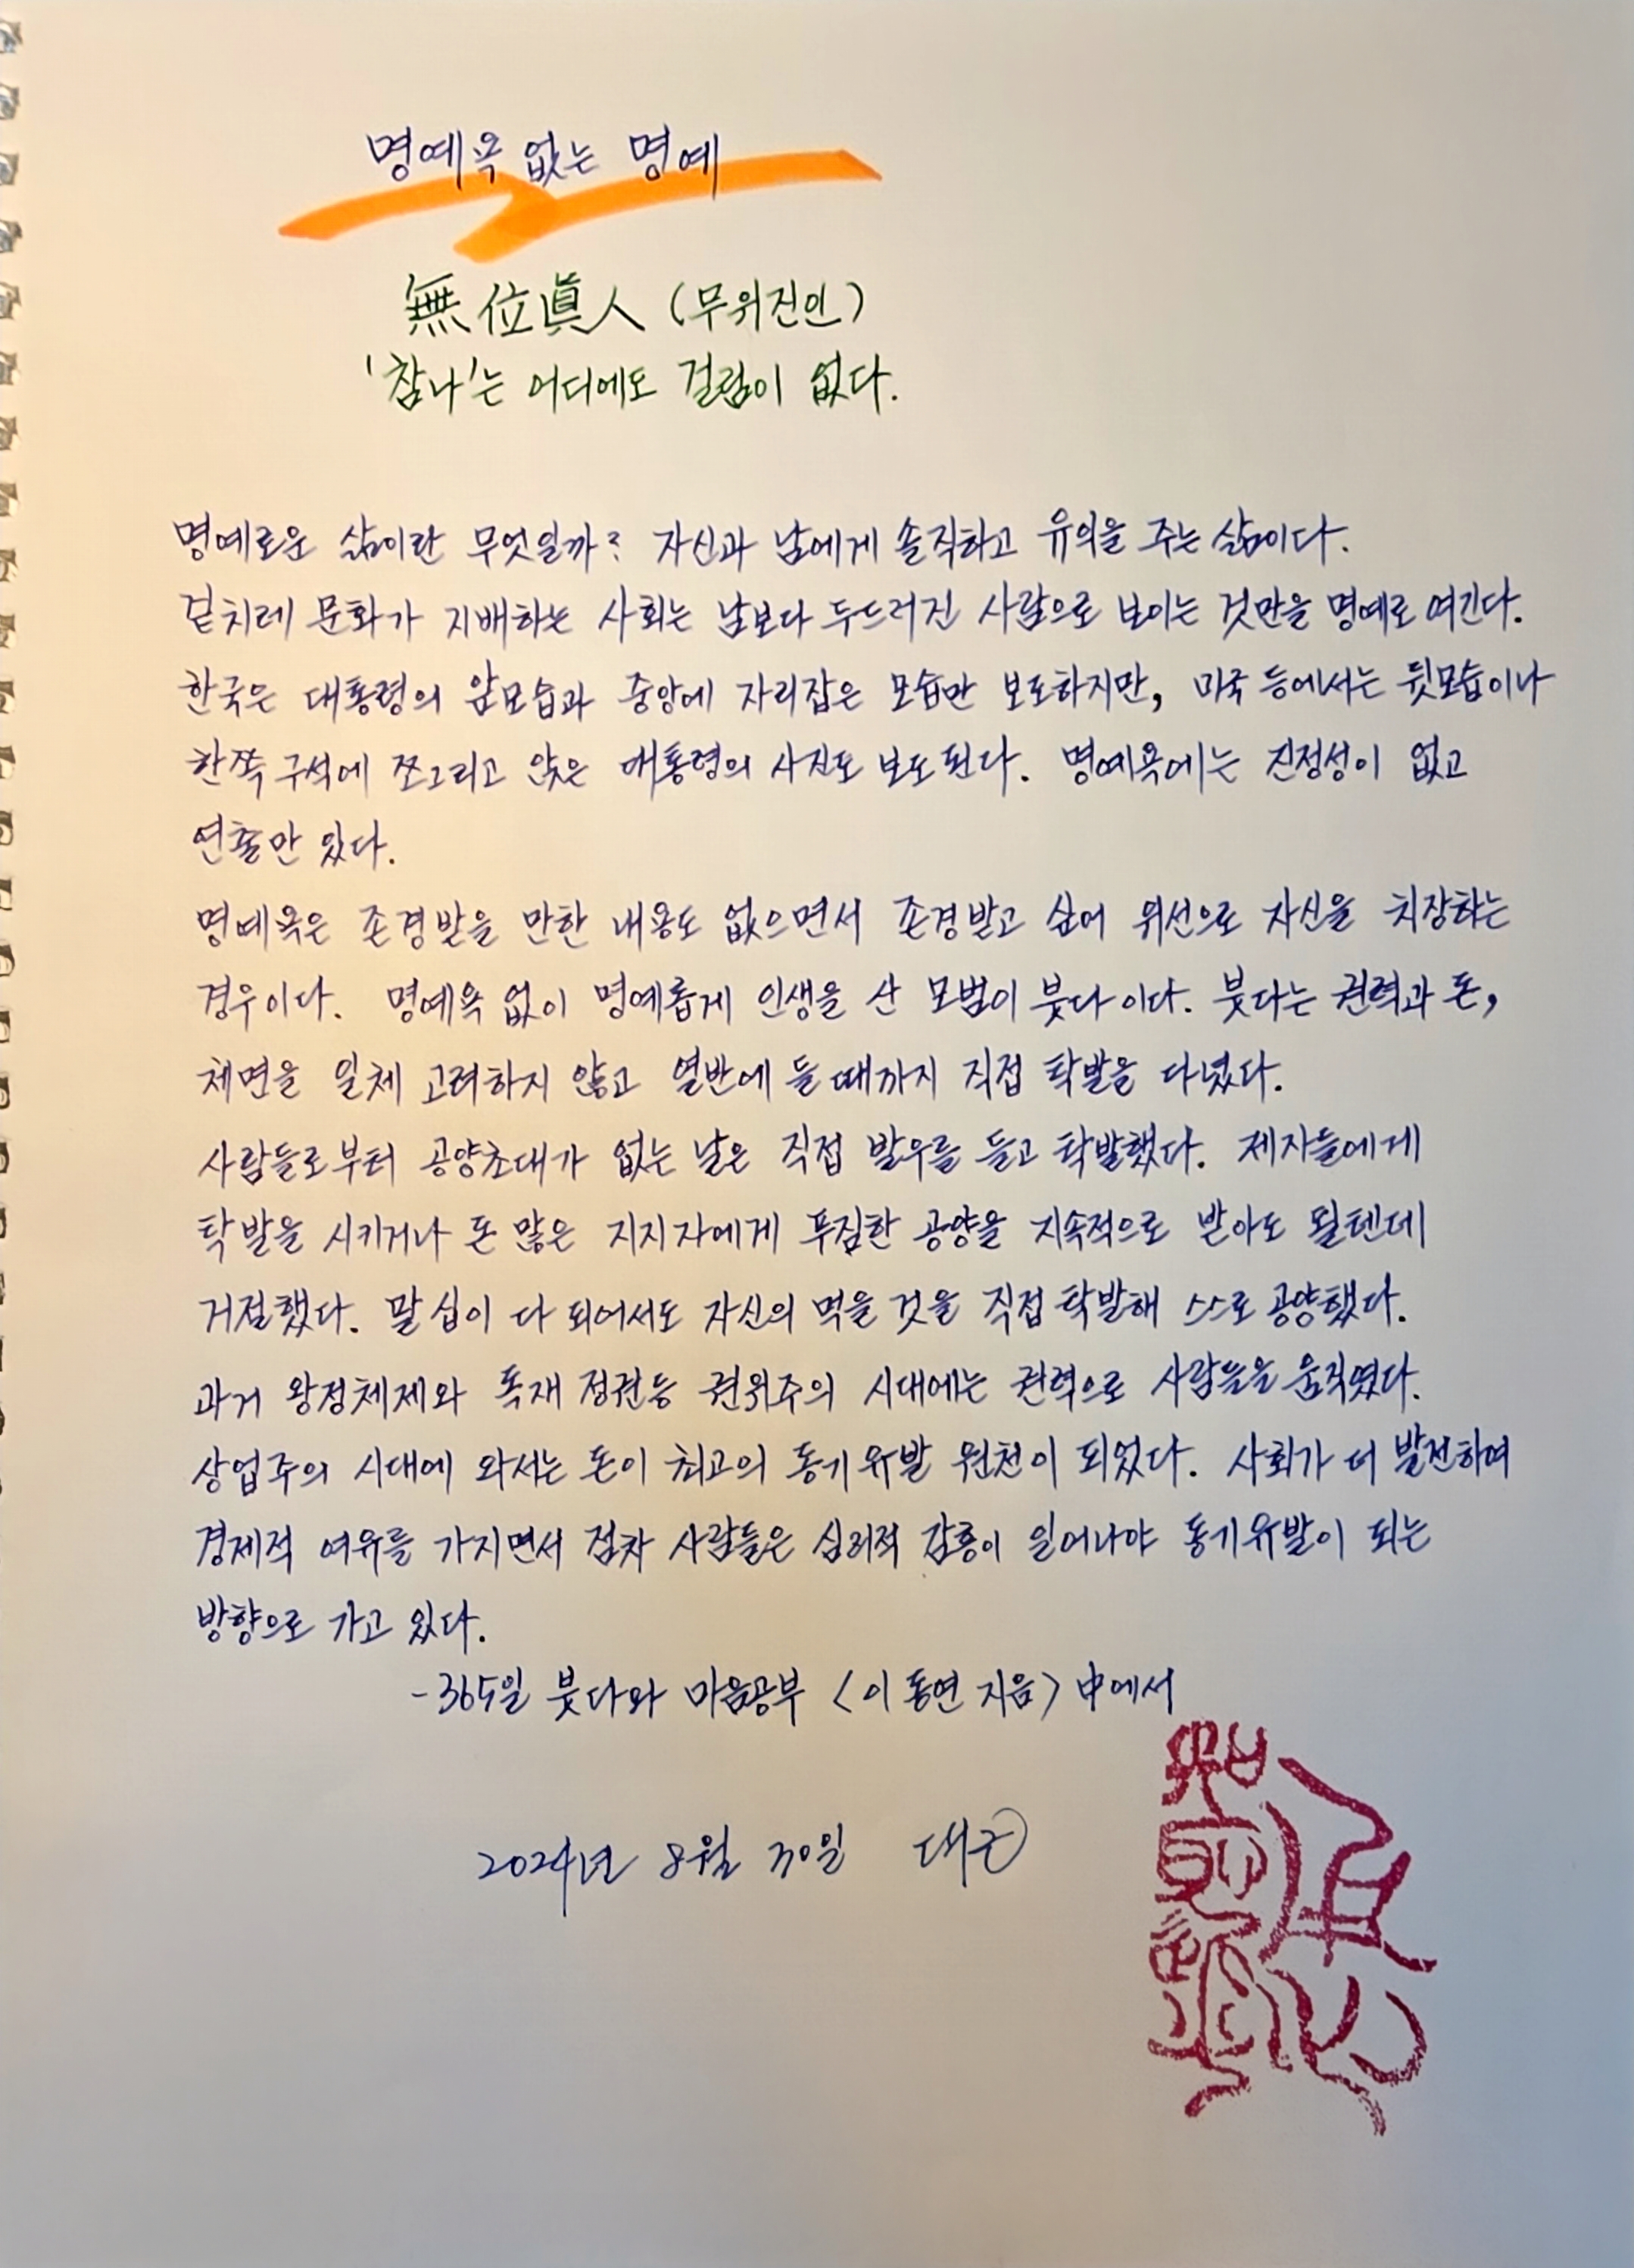 명예욕 없는 명예
無位眞人 (무위진인)
'참나'는 어디에도 걸림이 없다.
명예로운 삶이란 무엇일까? 자신과 남에게 솔직하고 유익을 주는 삶이다.
겉치레 문화가 지배하는 사회는 남보다 두드러진 사람으로 보이는 것만을 명예로 여긴다.
한국은 대통령의 앞모습과 중앙에 자리잡은 모습만 보도하지만, 미국 등에서는 뒷모습이나
한쪽 구석에 쪼그리고 앉은 대통령의 사진도 보도된다. 명예욕에는 진정성이 없고
연출만 있다.
명예욕은 존경받을 만한 내용도 없으면서 존경받고 싶어 위선으로 자신을 치장하는
경우이다. 명예욕 없이 명예롭게 인생을 산 모범이 붓다이다. 붓다는 권력과 돈,
체면을 일체 고려하지 않고 열반에 들 때까지 직접 탁발을 다녔다.
사람들로부터 공양초대가 없는 날은 직접 발우를 들고 탁발했다. 제자들에게
탁발을 시키거나 돈 많은 지지자에게 푸짐한 공양을 지속적으로 받아도 될텐데
거절했다. 말십이 다 되어서도 자신의 먹을 것을 직접 탁발해 스스로 공양했다.
과거 왕정체제와 독재 정권등 권위주의 시대에는 권력으로 사람들을 움직였다.
상업주의 시대에 와서는 돈이 최고의 동기 유발 원천이 되었다. 사회가 더 발전하며
경제적 여유를 가지면서 점차 사람들은 심리적 감흥이 일어나야 동기유발이 되는
방향으로 가고 있다.
-365일 붓다와 마음공부 <이동연 지음> 中에서
2024년 8월 30일 대근